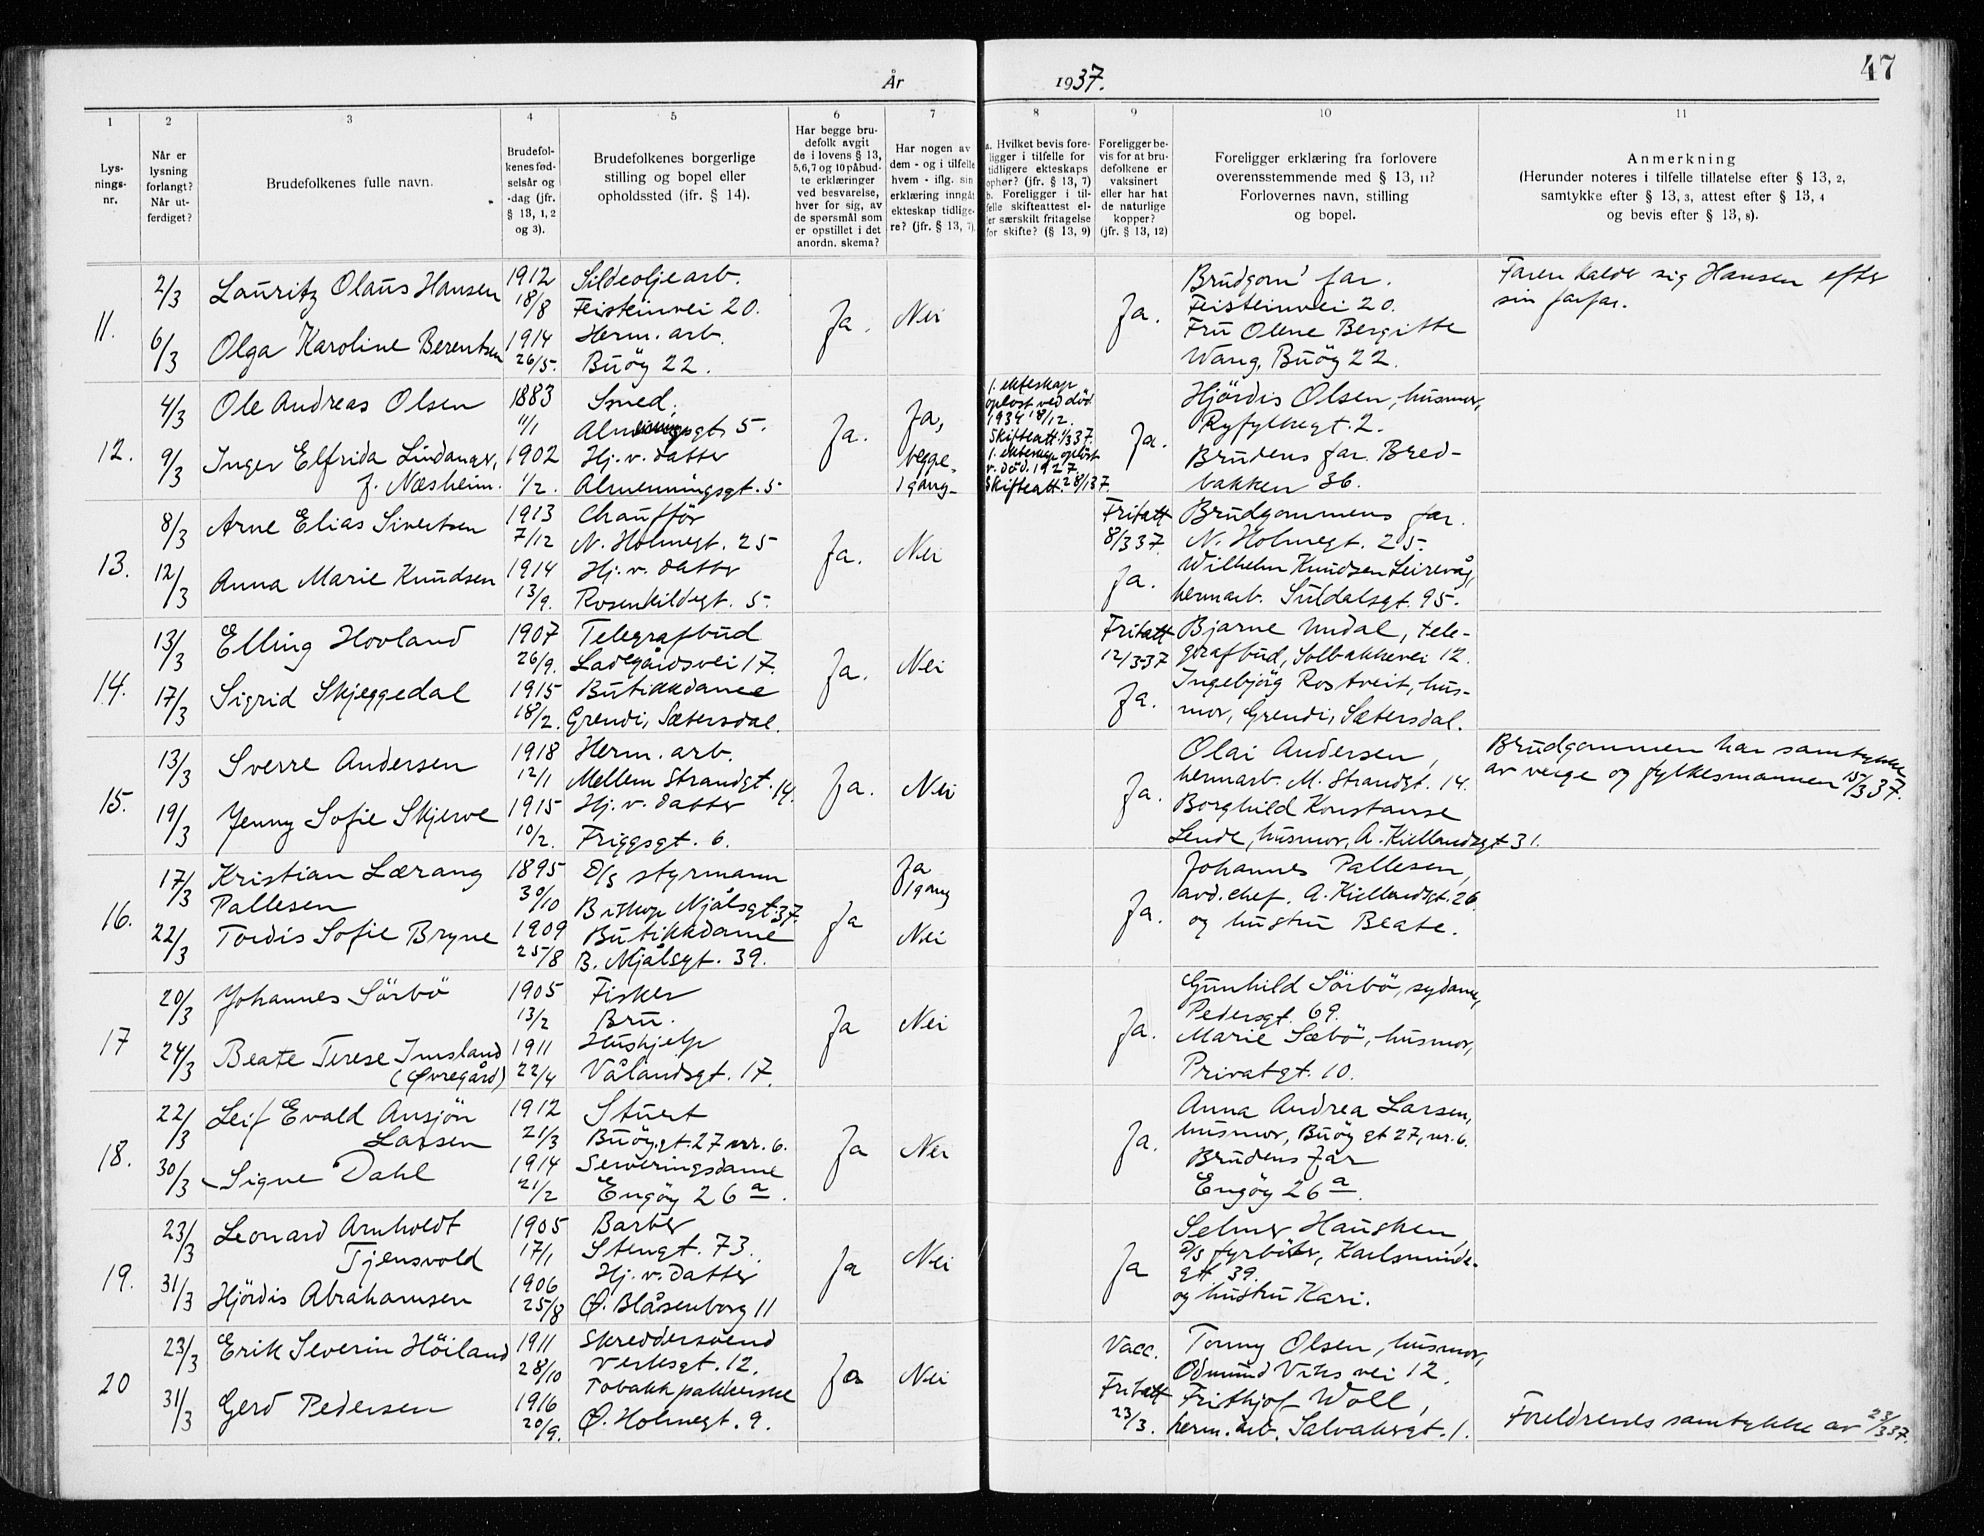 47
År 1937.
1 2 3 4 5 6 7 8 9 10 11
Lys-
nings-
nr.
Når er
lysning
forlangt?
Når ut-
ferdiget?
Brudefolkenes fulle navn.
Brudefol-
kenes fød-
selsår og
-dag (jfr.
§ 13, 1, 2
og 3).
Brudefolkenes borgerlige
stilling og bopel eller
opholdssted (jfr. § 14).
Har begge bru-
defolk avgit
de i lovens § 13,
5, 6, 7 og 10 påbud-
te erklæringer
ved besvarelse,
hver for sig, av
de spørsmål som
er opstillet i det
anordn. skema?
Har nogen av
dem - og i tilfelle
hvem - iflg. sin
erklæring inngåt
ekteskap tidlige-
re? (jfr. § 13, 7).
a. Hvilket bevis fore-
ligger i tilfelle for
tidligere ekteskaps
ophør? (jfr. § 13, 7)
b. Foreligger i til-
felle skifteattest el-
ler særskilt fritagelse
for skifte? (§ 13, 9)
Foreligger be-
vis for at bru-
defolkene er
vaksinert
eller har hat
de naturlige
kopper?
(jfr. § 13, 12)
Foreligger erklæring fra forlovere
overensstemmende med § 13, 11?
Forlovernes navn, stilling
og bopel.
Anmerkning
(Herunder noteres i tilfelle tillatelse efter § 13, 2,
samtykke efter § 13, 3, attest efter § 13, 4
og bevis efter § 13, 8).
11.
2/3
6/3
Lauritz Olaus Hansen
Olga Karoline Berentsen
1912
18/8
1914
26/5.
Sildeoljearb.
Feisteinvei 20.
Herm. arb.
Buöy 22.
Ja.
Nei
Ja.
Brudgom' far.
Feisteinvei 20.
Fru Olene Bergitte
Wang, Buöy 22.
Faren kaldte sig Hansen efter
sin farfar.
12.
4/3
9/3
Ole Andreas Olsen
Inger Elfrida Lindanger,
f. Næsheim.
1883
11/1
1902
1/2.
Smed,
Almenningsgt. 5.
Hj. v. datter
Almenningsgt. 5
Ja.
Ja,
begge,
1 gang-
1. ekteskap
opløst ved død
1934 18/12.
Skifteatt. 1/3 37.
1. ekteskap opløst
v. død. 1927.
Skifteatt. 28/1 37.
Ja.
Hjördis Olsen, husmor,
Ryfylkegt. 2.
Brudens far. Bred-
bakken 36.
13.
8/3
12/3
Arne Elias Sivertsen
Anna Marie Knudsen
1913
7/12
1914
13/9.
Chaufför
N. Holmegt. 25
Hj. v. datter
Rosenkildegt. 5.
Ja.
Nei
Fritatt
8/3 37.
Ja.
Brudgommens far.
N. Holmegt. 25.
Wilhelm Knudsen Leirevåg,
hermarb. Suldalsgt. 95.
14.
13/3
17/3
Elling Hovland
Sigrid Skjeggedal
1907
26/9.
1915
18/2.
Telegrafbud
Ladegårdsvei 17.
Butikkdame
Grendi, Sætersdal.
Ja.
Nei
Fritatt
12/3-37
Ja.
Bjarne Undal, tele-
grafbud, Solbakkevei 12.
Ingebjörg Rostveit, hus-
mor, Grendi, Sætersdal.
15.
13/3
19/3
Sverre Andersen
Jenny Sofie Skjerve
1918
12/1
1915
10/2.
Herm. arb.
Mellem Strandgt. 14.
Hj. v. datter
Friggsgt. 6.
Ja.
Nei
Ja.
Olai Andersen,
hermarb. M. Strandgt. 14.
Borghild Konstanse
Lende, husmor, A. Kiellandsgt 31.
Brudgommen har samtykke
av verge og fylkesmannen 15/3 37.
16.
17/3
22/3
Kristian Lærang
Pallesen
Tordis Sofie Bryne
1895
30/10
1909
25/8
D/S styrmann
Biskop Njålsgt 37.
Butikkdame
B. Njålsgt. 39.
Ja
Ja
1 gang
Nei
Ja.
Johannes Pallesen,
avd. chef. A. Kiellandsgt. 26.
og hustru Beate.
17
20/3
24/3
Johannes Sörbö
Beate Terese Imsland
(Øvregård)
1905
13/2
1911
22/4
Fisker
Bru.
Hushjelp
Vålandsgt. 17.
Ja
Nei
Ja.
Gunhild Sörbö, sydame,
Pedersgt. 69.
Marie Sæbö, husmor,
Privatgt. 10.
18.
22/3
30/3
Leif Evald Ansjön
Larsen
Signe Dahl
1912
21/3
1914
21/2
Stuert
Buöygt. 27 nr. 6.
Serveringsdame
Engöy 26 a.
Ja
Nei
Ja.
Anna Andrea Larsen,
husmor, Buöy gt 27, nr. 6.
Brudens far
Engöy 26 a.
19.
23/3
31/3
Leonard Arnholdt
Tjensvold
Hjördis Abrahamsen
1905
17/1
1906
25/8
Barber
Stengt. 73.
Hj. v. datter
Ø. Blåsenborg 11
Ja
Nei
Ja
Selmer Hausken,
D/S fyrböter, Karlsminde-
gt. 39.
og hustru Kari.
20
23/3
31/3
Erik Severin Höiland
Gerd Pedersen
1911
28/10
1916
20/9.
Skreddersvend
Verksgt. 12.
Tobakkpakkerske
Ø. Holmegt. 9.
Ja
Nei
Vacc.
Fritatt
23/3.
Tonny Olsen, husmor,
Odmund Viks vei 12.
Frithjof Woll,
herm. arb. Salvakergt. 1.
Foreldrenes samtykke av 23/3 37.